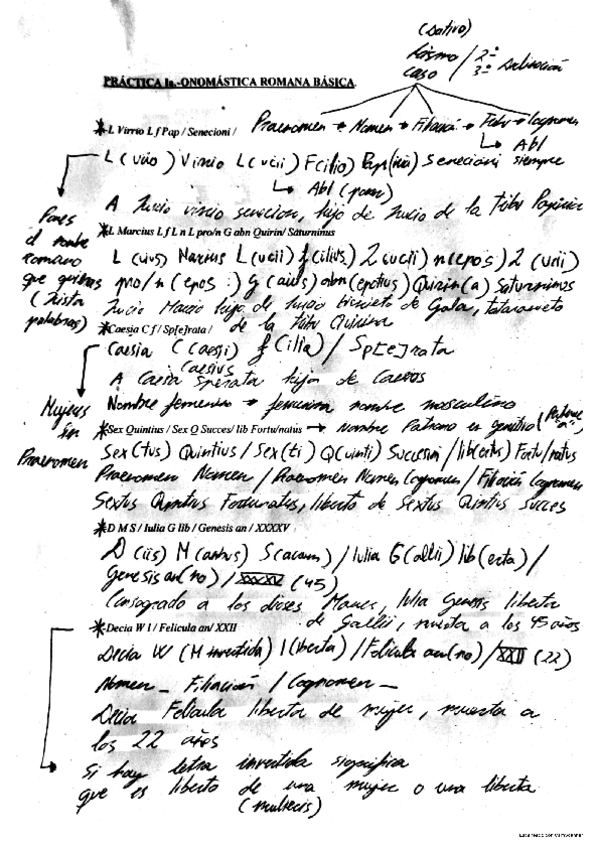 (dativo)
Mismo / 2ª
caso / 3ª declinación
PRÁCTICA Ia.-ONOMÁSTICA ROMANA BÁSICA.
L Virrio L f Pap / Senecioni /
Praenomen → Nomen → Filiación → Tribu → Cognomen
Abl
siempre
L(ucio) Virrio L(ucii) F(ilio) Pap(iria) Senecioni
Abl
A Lucio Virrio Senecion, hijo de Lucio de la tribu Papiria
Pones
el nombre
romano
que quieras
palabras)
L Marcius L f L n L pro/n G abn Quirin/ Saturninus
L(ucius) Marcius L(ucii) f(ilius) L(ucii) n(epos) L(ucii)
pro/n(epos) G(aius) abn(epotius) Quirin(a) Saturninus
Lucio Marcio hijo de Lucio
de la tribu Quirina
Caesia C f / Sp[e]rata /
Caesia C(aesii) f(ilia) / Sp[e]rata
Caesius
A Caesia Sperata hija de
Mujeres
sin
Praenomen
Nombre femenino → nombre masculino
Sex Quintius / Sex Q Succes/ lib Fortu/natus
→ Nombre Patrono en genitivo
Sex(tus) Quintius / Sex(ti) Q(uinti) Succesini / lib(ertus) Fortu/natus
Praenomen Nomen / Praenomen Nomen Cognomen / Filiación Cognomen
Sextus Quintius Fortunatus, liberto de Sextus Quintius Succes
D M S / Iulia G lib / Genesis an / XXXXV
D(iis) M(anibus) S(acrum) / Iulia G(allii) lib(erta) /
Genesis an(no) / XXXXV (45)
Consagrado a los dioses Manes, Iulia Genesis liberta
de Gallii, muerta a los 45 años
Decia W l / Felicula an/ XXII
Decia W (M invertida) l(iberta) / Felicula an(no) / XXII (22)
Nomen - Filiación / Cognomen -
Decia Felicula liberta de mujer, muerta a
los 22 años
Si hay letra invertida significa
que es liberto de una mujer o una liberta
(mulieris)